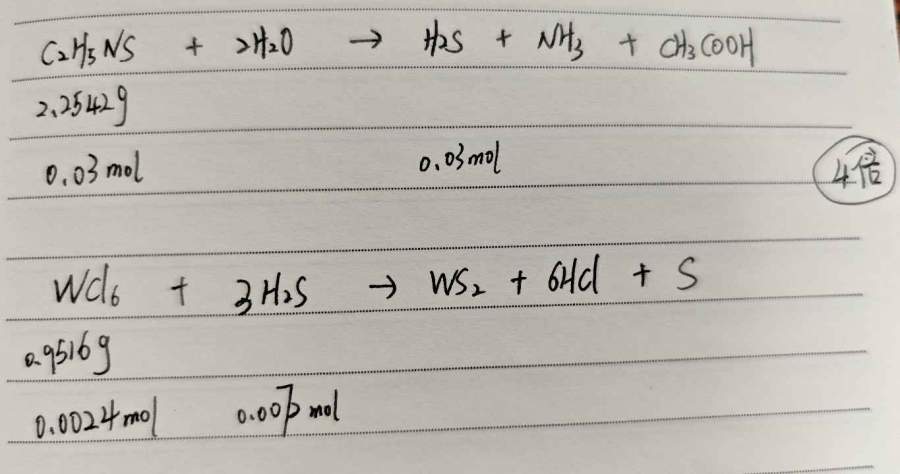 C₂H₅NS + 2H₂O → H₂S + NH₃ + CH₃COOH
2.2542g
0.03mol 0.03mol
4倍
WCl₆ + 3H₂S → WS₂ + 6HCl + S
0.9516g
0.0024mol 0.007mol